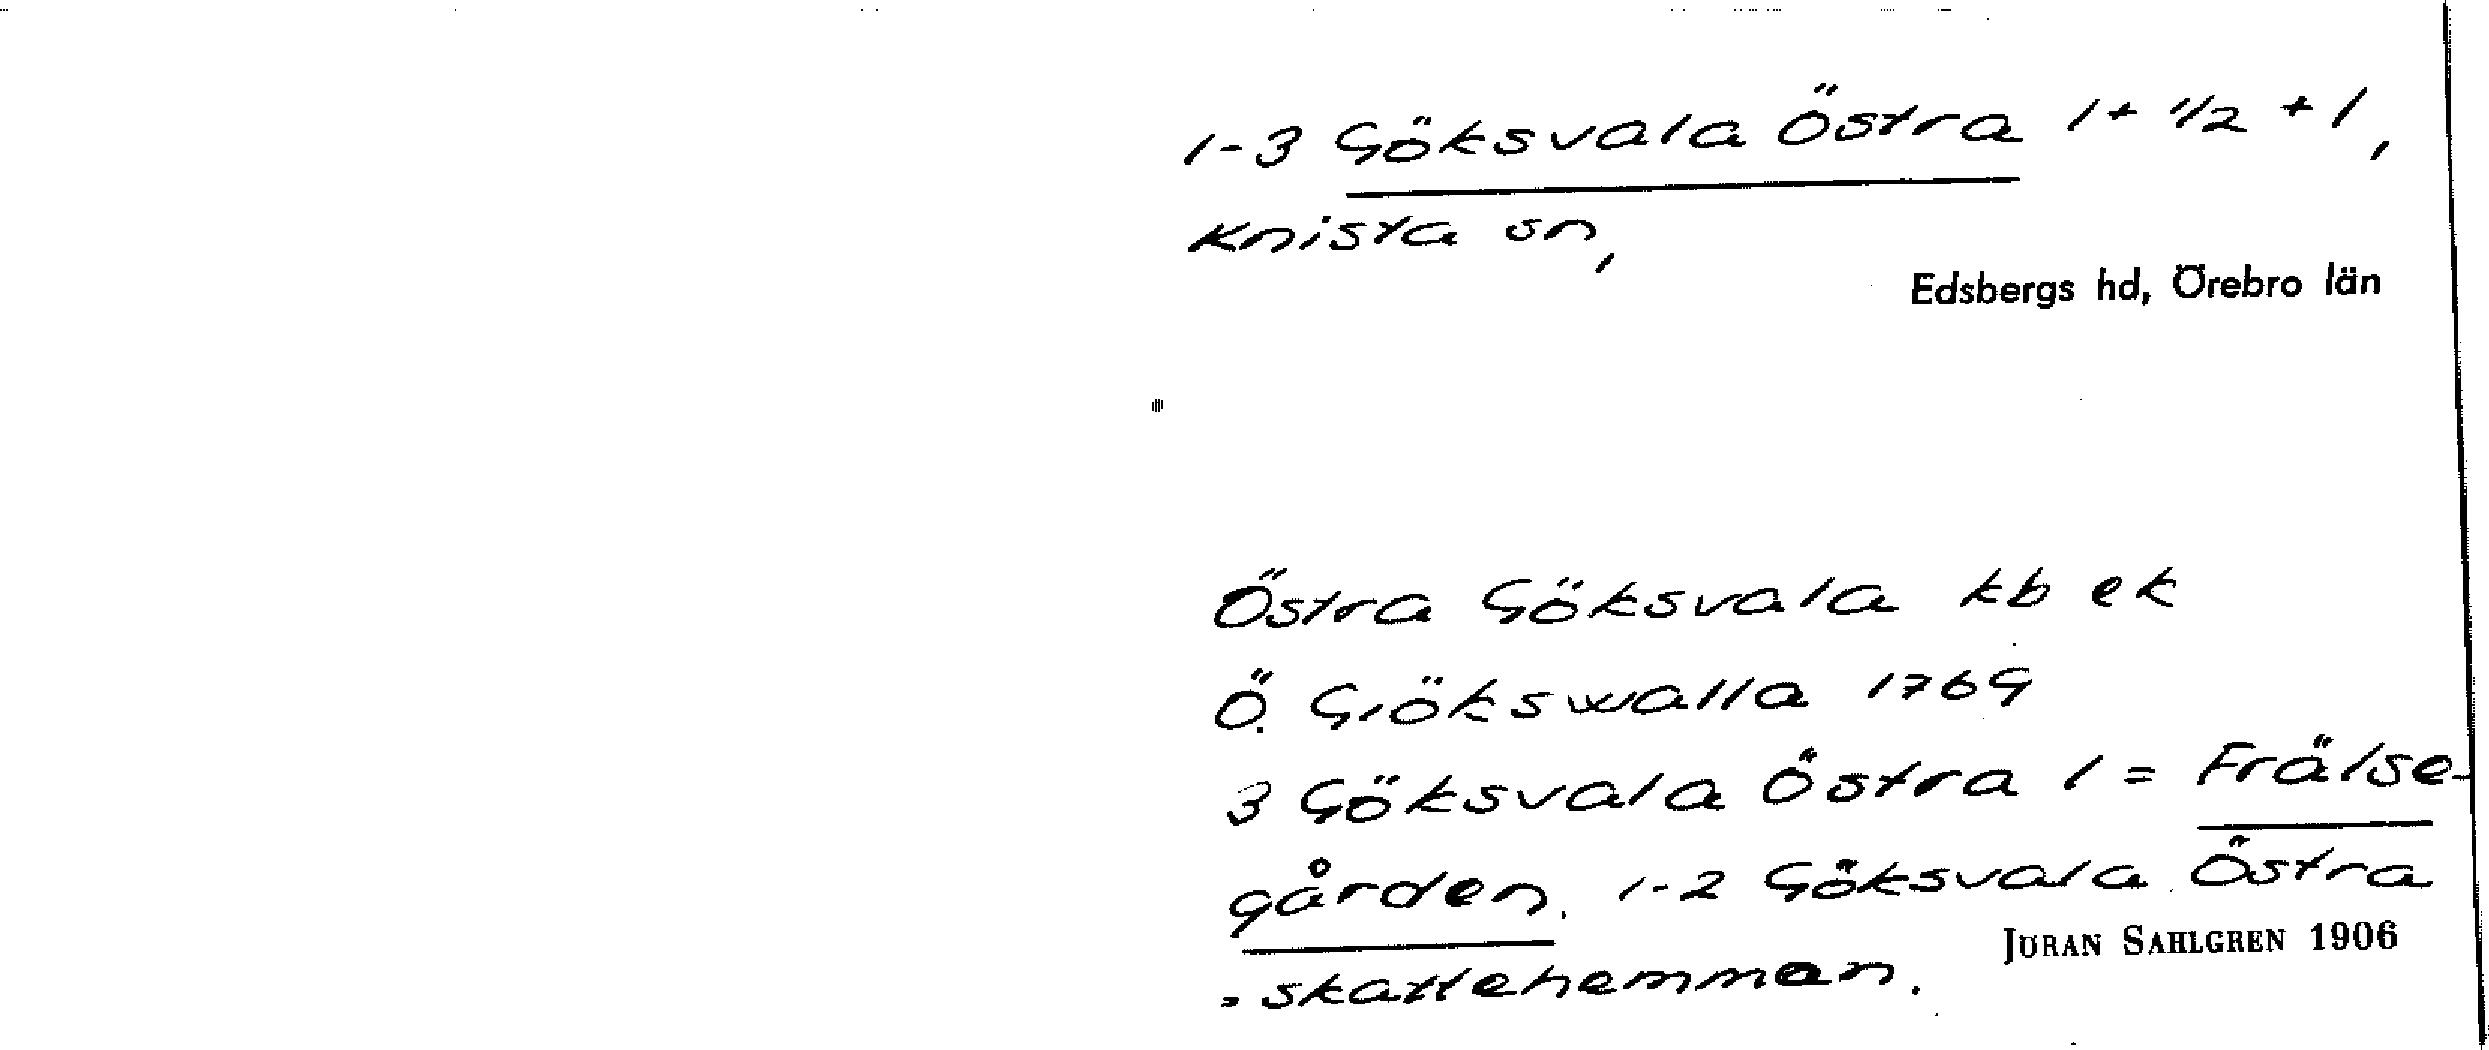 1-3 Göksvala Östra 1 + 1/2 + 1,
Knista sn,
Edsbergs hd, Örebro län
Östra Göksvala kb ek
Ö. Giökswalla 1769
3 Göksvala Östra 1 = Frälse-
gården. 1-2 Göksvala Östra
JÖRAN SAHLGREN 1906
= skattehemman.